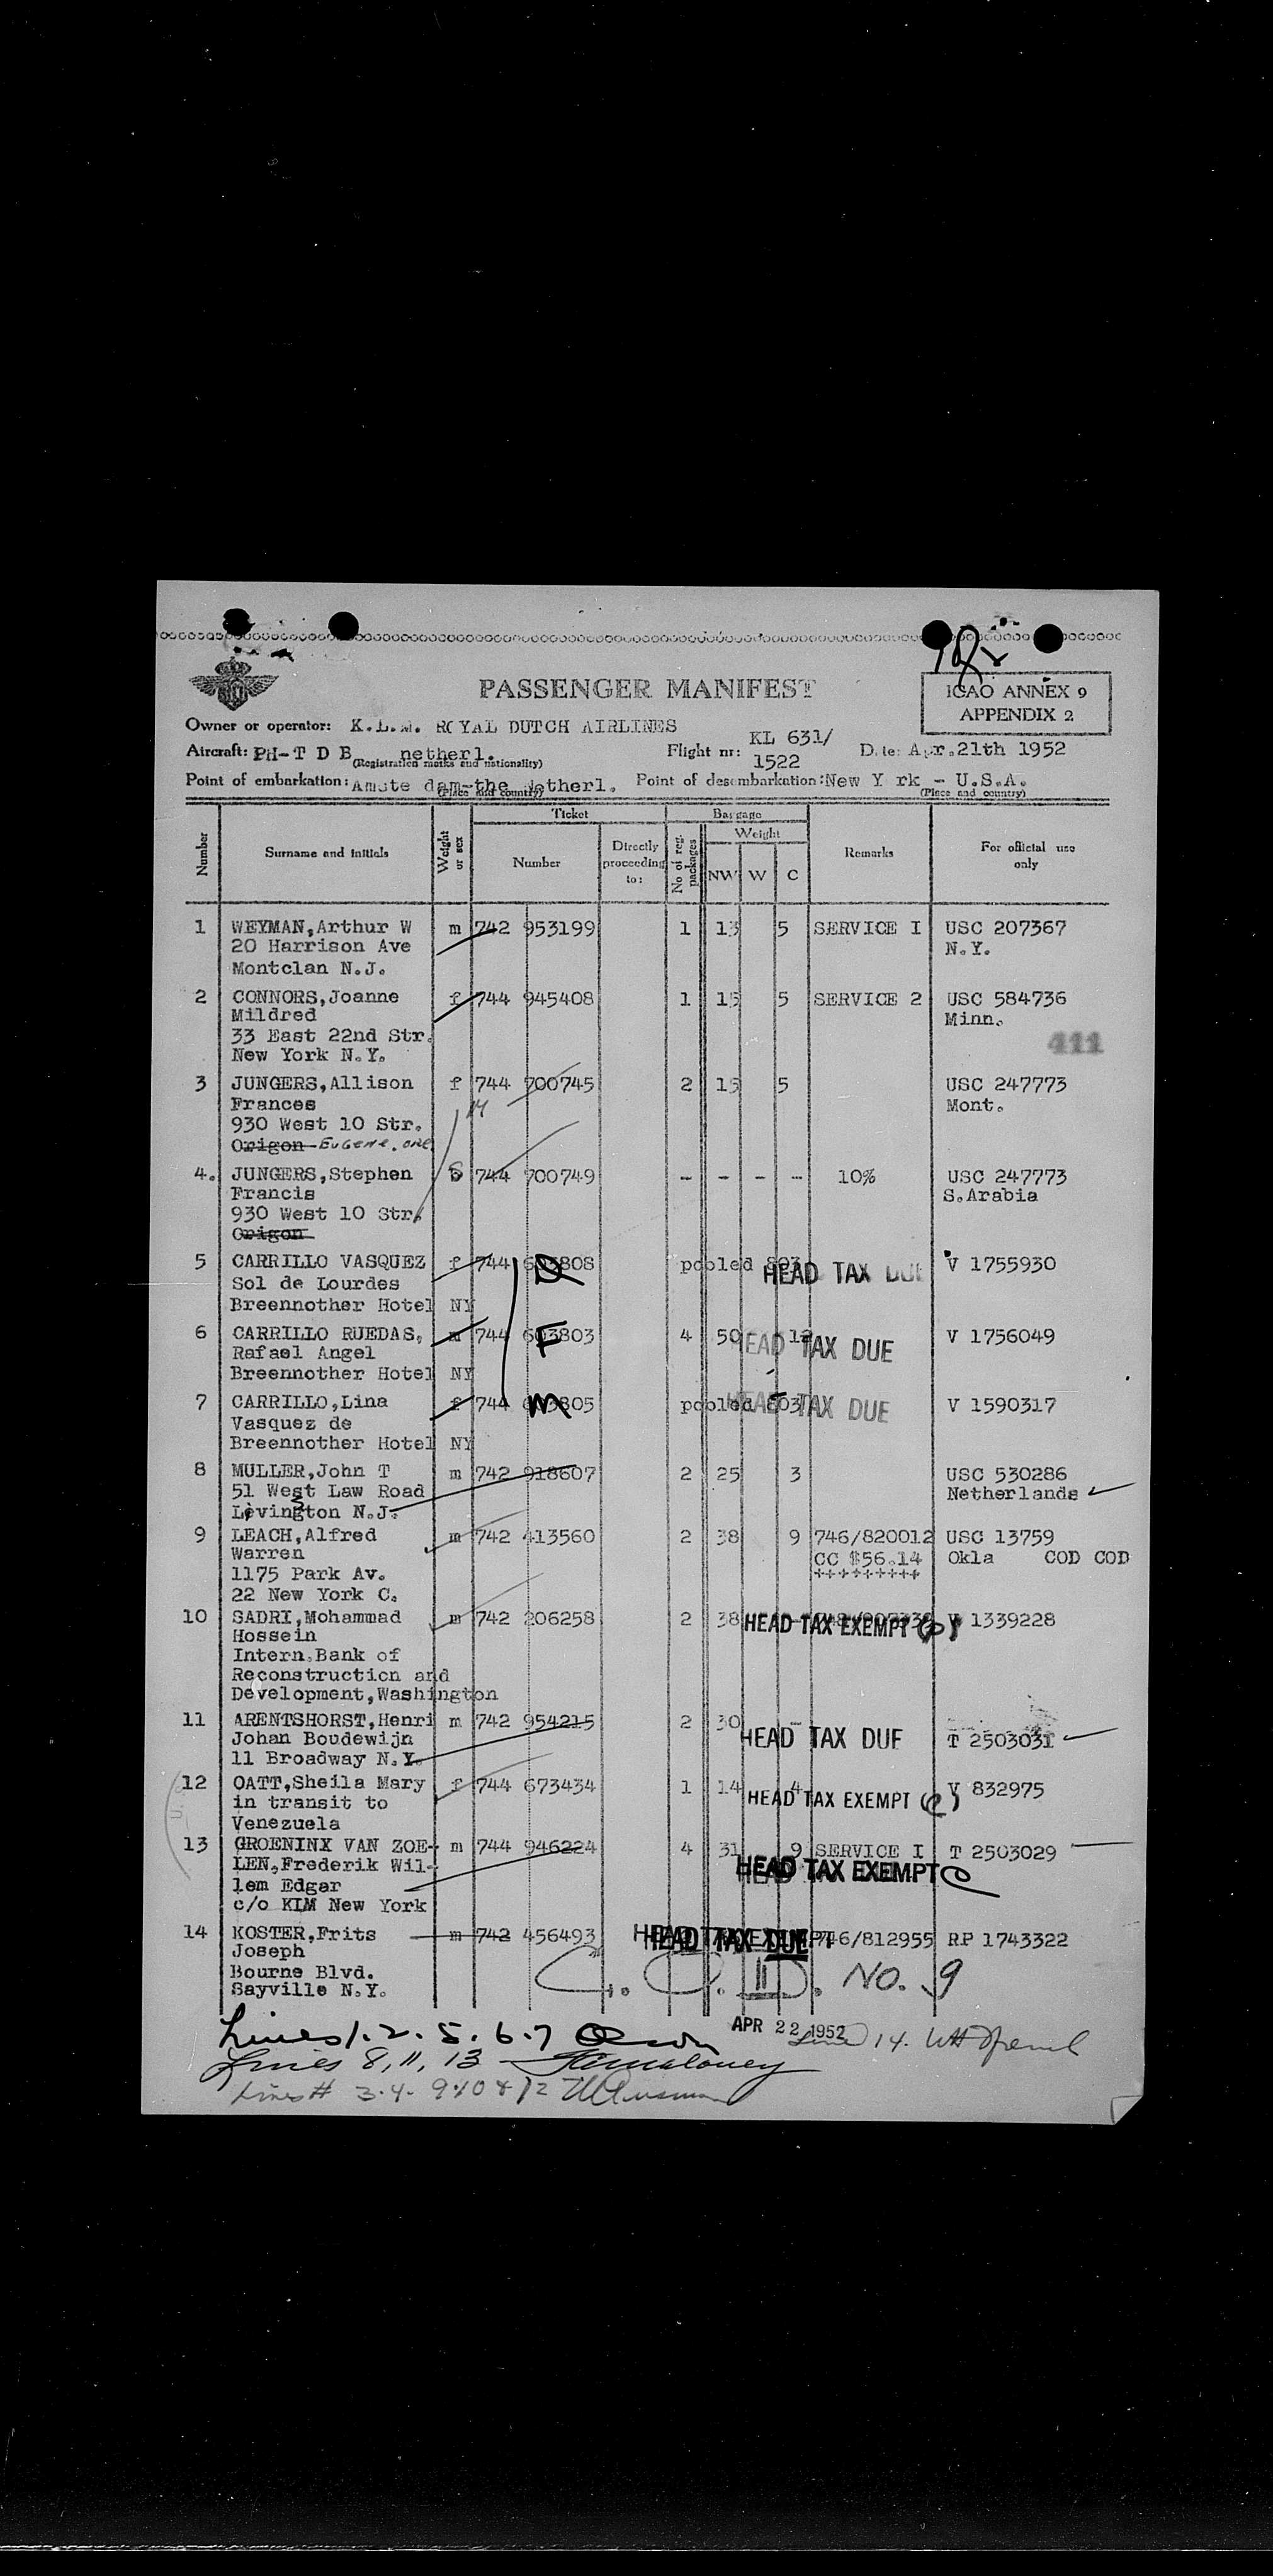 PASSENGER MANIFEST
ICAO ANNEX 9
APPENDIX 2
Owner or operator: K.L.M. ROYAL DUTCH AIRLINES
Aircraft: PH-T D B netherl. Flight nr: KL 631/ 1522 Date: Apr.21th 1952
(Registration marks and nationality)
Point of embarkation: Amste dam-the Netherl. Point of desembarkation: New Y rk - U.S.A.
(Place and country) (Place and country)
Number Surname and initials Weight or sex Ticket Number Directly proceeding to: Baggage No of reg. packages Weight NW W C Remarks For official use only
1 WEYMAN,Arthur W m 742 953199 1 13 5 SERVICE I USC 207367
20 Harrison Ave N.Y.
Montclan N.J.
2 CONNORS,Joanne f 744 945408 1 15 5 SERVICE 2 USC 584736
Mildred Minn.
33 East 22nd Str.
New York N.Y.
411
3 JUNGERS,Allison f 744 700745 2 15 5 USC 247773
Frances Mont.
930 West 10 Str.
Origon Eugene. ore.
4. JUNGERS,Stephen 744 700749 - - - - 10% USC 247773
Francis S.Arabia
930 West 10 Str.
Origon
5 CARRILLO VASQUEZ f 744 603808 pooled 803 HEAD TAX DUE V 1755930
Sol de Lourdes
Breennother Hotel NY
6 CARRILLO RUEDAS, m 744 603803 F 4 50 12 HEAD TAX DUE V 1756049
Rafael Angel
Breennother Hotel NY
7 CARRILLO,Lina f 744 603805 M pooled 803 HEAD TAX DUE V 1590317
Vasquez de
Breennother Hotel NY
8 MULLER,John T m 742 918607 2 25 3 USC 530286
51 West Law Road Netherlands
Levington N.J.
9 LEACH,Alfred m 742 413560 2 38 9 746/820012 USC 13759
Warren CC $56.14 Okla COD COD
1175 Park Av. +++++++++
22 New York C.
10 SADRI,Mohammad m 742 206258 2 38 HEAD TAX EXEMPT V 1339228
Hossein
Intern.Bank of
Reconstruction and
Development,Washington
11 ARENTSHORST,Henri m 742 954215 2 30 - HEAD TAX DUE T 2503031
Johan Boudewijn
11 Broadway N.Y.
12 OATT,Sheila Mary f 744 673434 1 14 4 HEAD TAX EXEMPT (c) V 832975
in transit to
Venezuela
13 GROENINX VAN ZOE- m 744 946224 4 31 9 SERVICE I T 2503029
LEN,Frederik Wil- HEAD TAX EXEMPT
lem Edgar
c/o KLM New York
14 KOSTER,Frits m 742 456493 HEAD TAX DUE 746/812955 RP 1743322
Joseph
Bourne Blvd. C.O.D. NO. 9
Sayville N.Y.
Lines 1. 2. 5. 6. 7 APR 22 1952 Line 14.
Lines 8, 11, 13
Lines # 3. 4. 9. 10 & 12